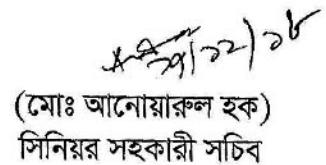 ২৭/১২/১৮
(মোঃ আনোয়ারুল হক)
সিনিয়র সহকারী সচিব